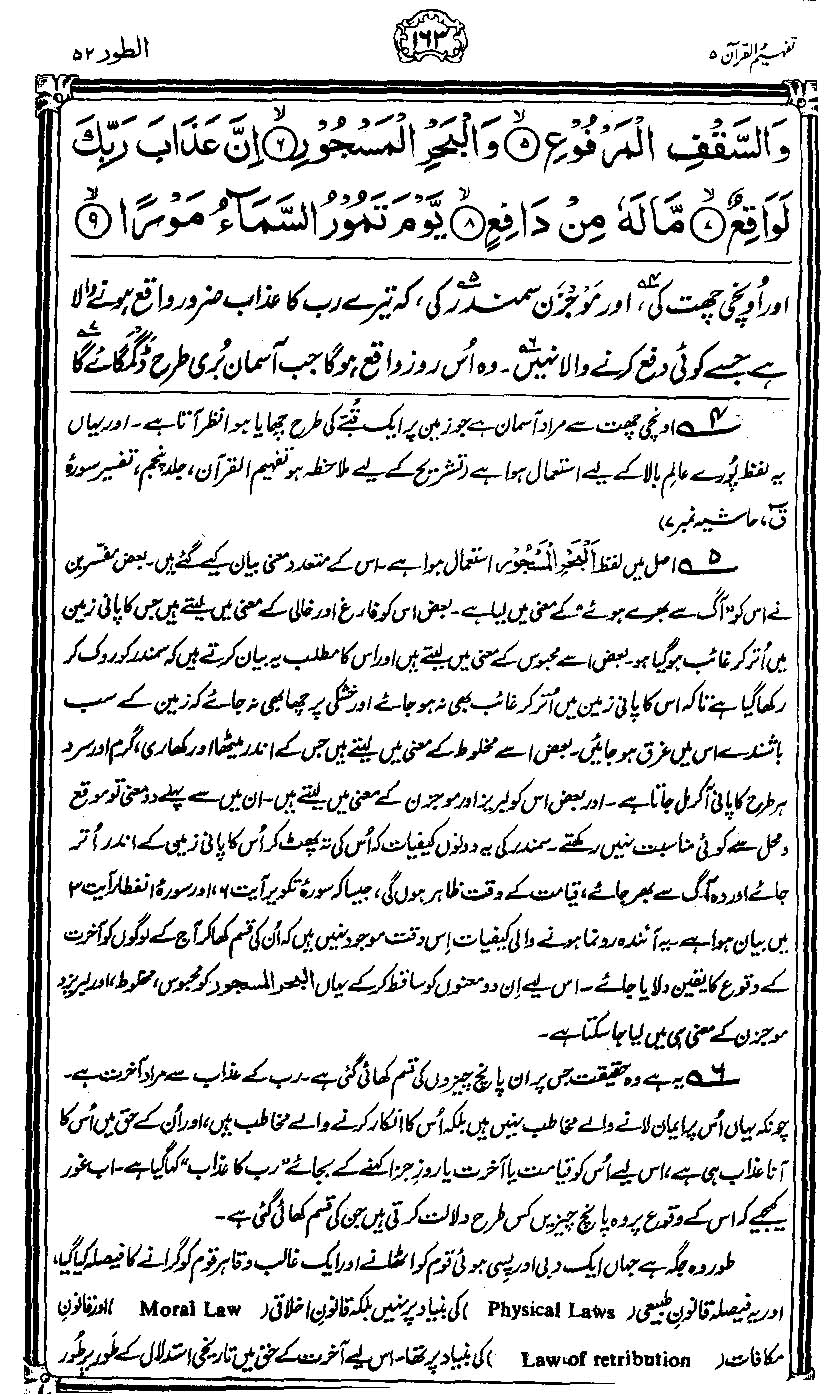 تفہیم القرآن ۵
۱۶۳
الطور ۵۲
وَالسَّقْفِ الْمَرْفُوْعِ ۝۵ وَالْبَحْرِ الْمَسْجُوْرِ ۝۶ اِنَّ عَذَابَ رَبِّكَ
لَوَاقِعٌ ۝۷ مَّا لَهٗ مِنْ دَافِعٍ ۝۸ يَّوْمَ تَمُوْرُ السَّمَآءُ مَوْرًا ۝۹
اور اُونچی چھت کی۴، اور مَوجزن سمندر کی۵، کہ تیرے رب کا عذاب ضرور واقع ہونے والا
ہے جسے کوئی دفع کرنے والا نہیں۶۔ وہ اُس روز واقع ہوگا جب آسمان بُری طرح ڈگمگائے گا۷
۴ اونچی چھت سے مراد آسمان ہے جو زمین پر ایک قُبّے کی طرح چھایا ہوا نظر آتا ہے۔ اور یہاں
یہ لفظ پُورے عالمِ بالا کے لیے استعمال ہوا ہے (تشریح کے لیے ملاحظہ ہو تفہیم القرآن، جلد پنجم، تفسیر سورۂ
ق، حاشیہ نمبر ۷)
۵ اصل میں لفظ اَلْبَحْرِ الْمَسْجُوْرِ استعمال ہوا ہے۔ اس کے متعدد معنی بیان کیے گئے ہیں۔ بعض مفسّرین
نے اس کو "آگ سے بھرے ہوئے" کے معنی میں لیا ہے۔ بعض اس کو فارغ اور خالی کے معنی میں لیتے ہیں جس کا پانی زمین
میں اُتر کر غائب ہو گیا ہو۔ بعض اسے محبوس کے معنی میں لیتے ہیں اور اس کا مطلب یہ بیان کرتے ہیں کہ سمندر کو روک کر
رکھا گیا ہے تاکہ اس کا پانی زمین میں اُتر کر غائب بھی نہ ہو جائے اور خشکی پر چھا بھی نہ جائے کہ زمین کے سب
باشندے اس میں غرق ہو جائیں۔ بعض اسے مخلوط کے معنی میں لیتے ہیں جس کے اندر میٹھا اور کھاری، گرم اور سرد
ہر طرح کا پانی آ کر مل جاتا ہے۔ اور بعض اس کو لبریز اور موجزن کے معنی میں لیتے ہیں۔ ان میں سے پہلے دو معنی تو موقع
و محل سے کوئی مناسبت نہیں رکھتے۔ سمندر کی یہ دونوں کیفیات کہ اُس کی تہ پھٹ کر اُس کا پانی زمین کے اندر اُتر
جائے اور وہ آگ سے بھر جائے، قیامت کے وقت ظاہر ہوں گی، جیسا کہ سورۂ تکویر آیت ۶، اور سورۂ انفطار آیت ۳
میں بیان ہوا ہے۔ یہ آئندہ رونما ہونے والی کیفیات اِس وقت موجود نہیں ہیں کہ اُن کی قسم کھا کر آج کے لوگوں کو آخرت
کے وقوع کا یقین دلایا جائے۔ اس لیے اِن دو معنوں کو ساقط کر کے یہاں البحر المسجور کو محبوس، مخلوط، اور لبریز و
موجزن کے معنی ہی میں لیا جا سکتا ہے۔
۶ یہ ہے وہ حقیقت جس پر ان پانچ چیزوں کی قسم کھائی گئی ہے۔ رب کے عذاب سے مراد آخرت ہے۔
چونکہ یہاں اُس پر ایمان لانے والے مخاطب نہیں ہیں بلکہ اُس کا انکار کرنے والے مخاطب ہیں، اور اُن کے حق میں اُس کا
آنا عذاب ہی ہے، اس لیے اُس کو قیامت یا آخرت یا روزِ جزا کہنے کے بجائے "رب کا عذاب" کہا گیا ہے۔ اب غور
کیجیے کہ اس کے وقوع پر وہ پانچ چیزیں کس طرح دلالت کرتی ہیں جن کی قسم کھائی گئی ہے۔
طور وہ جگہ ہے جہاں ایک دبی اور پسی ہوئی قوم کو اٹھانے اور ایک غالب و قاہر قوم کو گرانے کا فیصلہ کیا گیا،
اور یہ فیصلہ قانونِ طبیعی ( Physical Laws ) کی بنیاد پر نہیں بلکہ قانونِ اخلاقی ( Moral Law ) اور قانونِ
مکافات ( Law of retribution ) کی بنیاد پر تھا۔ اس لیے آخرت کے حق میں تاریخی استدلال کے طور پر طُور